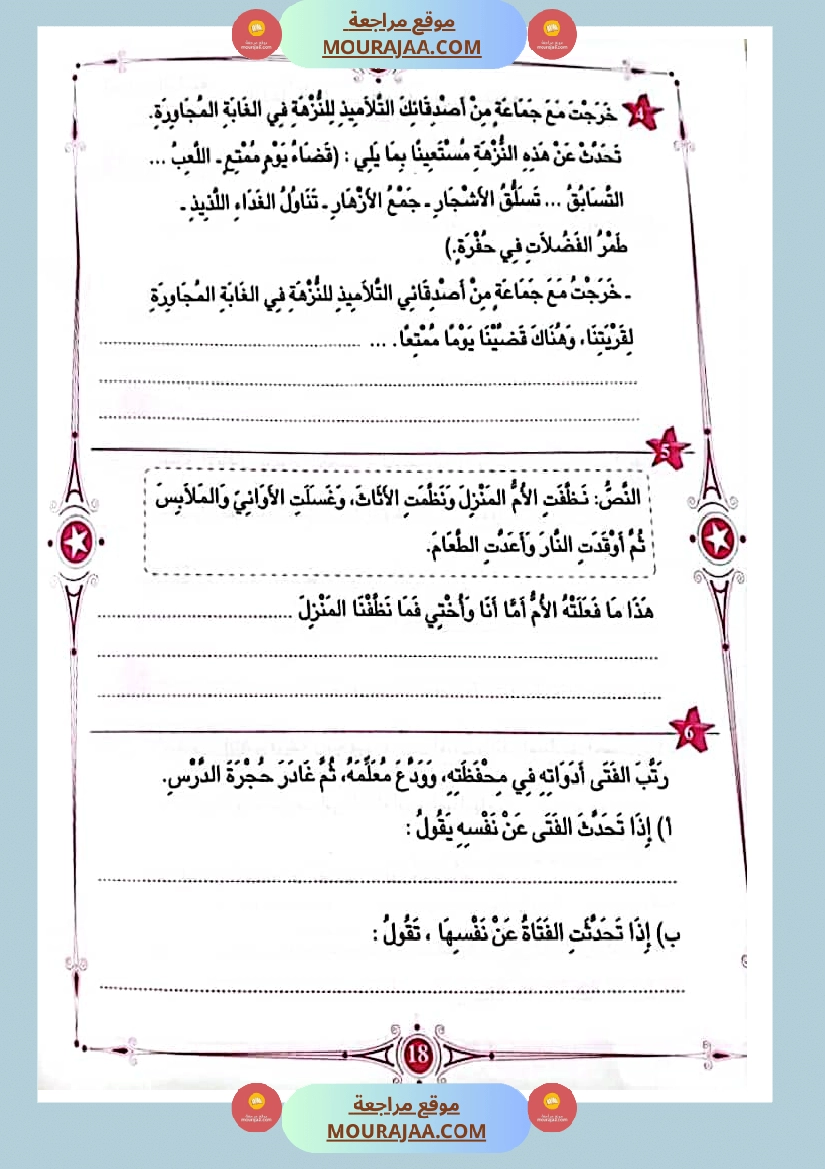 موقع مراجعة
MOURAJAA.COM
4
خَرَجْتَ مَعَ جَمَاعَةٍ مِنْ أَصْدِقَائِكَ التَّلَامِيذِ لِلنُّزْهَةِ فِي الغَابَةِ المُجَاوِرَةِ.
تَحَدَّثْ عَنْ هَذِهِ النُّزْهَةِ مُسْتَعِينًا بِمَا يَلِي : (قَضَاءُ يَوْمٍ مُمْتِعٍ ـ اللَّعِبُ ...
التَّسَابُقُ ... تَسَلُّقُ الأَشْجَارِ ـ جَمْعُ الأَزْهَارِ ـ تَنَاوُلُ الغَدَاءِ اللَّذِيذِ ـ
طَمْرُ الفَضُلَاتِ فِي حُفْرَةٍ.)
ـ خَرَجْتُ مَعَ جَمَاعَةٍ مِنْ أَصْدِقَائِي التَّلَامِيذِ لِلنُّزْهَةِ فِي الغَابَةِ المُجَاوِرَةِ
لِقَرْيَتِنَا، وَهُنَاكَ قَضَّيْنَا يَوْمًا مُمْتِعًا. ... ........................................
5
النَّصُّ: نَظَّفَتِ الأُمُّ المَنْزِلَ وَنَظَّمَتِ الأَثَاثَ، وَغَسَلَتِ الأَوَانِيَ وَالمَلَابِسَ
ثُمَّ أَوْقَدَتِ النَّارَ وَأَعَدَّتِ الطَّعَامَ.
هَذَا مَا فَعَلَتْهُ الأُمُّ أَمَّا أَنَا وَأُخْتِي فَمَا نَظَّفْنَا المَنْزِلَ ..............................
6
رَتَّبَ الفَتَى أَدَوَاتِهِ فِي مِحْفَظَتِهِ، وَوَدَّعَ مُعَلِّمَهُ، ثُمَّ غَادَرَ حُجْرَةَ الدَّرْسِ.
ا) إِذَا تَحَدَّثَ الفَتَى عَنْ نَفْسِهِ يَقُولُ :
ب) إِذَا تَحَدَّثَتِ الفَتَاةُ عَنْ نَفْسِهَا ، تَقُولُ :
18
موقع مراجعة
MOURAJAA.COM